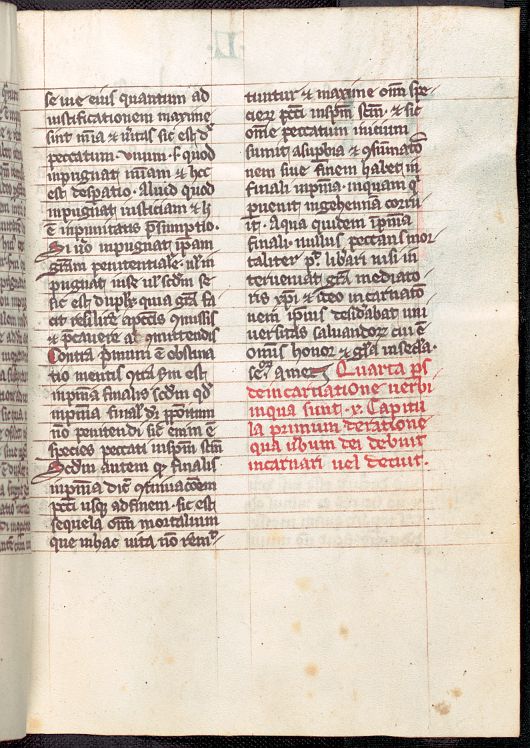 ·II·
se siue eius quantum ad
iustificationem maxime
sint mīa & ūitas sic est d'
peccatum vnum s' quod
inpugnat mīam & hec
est desperatio. Aliud quod
inpugnat iusticiam & h'
ē inpunitatis p̄sumptio.
Si ū inpugnat ip̄am
gr̄am penitentiale.
pugnat in se ul' scdm se
sic est duplex qua gr̄a fa
cit resilire a pctīs 9missis
& p̄cauere a 9mittendis
Contra primum ē obstina
tio mentis 9tra sm est
inpn̄ia finalis scdm qd
inpn̄ia final' dr̄ p̄positum
nō penitendi sic enim ē
species peccati in spm̄ scm̄
Scdm autem q finalis
inpn̄ia dic̄ 9tinuac̄oem
pctī usq ad finem. sic est
sequela om̄ mortalium
que in hac uita nō remi
tuntur & maxime om̄ spe
cierum pctī in spm̄ scm̄. & sic
om̄e peccatum inicium
sumit a supbia & 9sūmato
nem siue finem habet in
finali inpn̄ia. in quam q
puenit in gehenna corru
it. A qua quidem ip̄nia
finali. nullus peccans mor
taliter pt' libari nisi in
terueniat gr̄a mediato
ris xpi & ideo incarnato
nem ipius desidabat uni
uersitas saluandorum cui ē
omis honor & gl'a in secula.
sec̄lorum amen. Quarta ps
de incarnatione verbi
in qua sunt .x. Capitu
la primum de ratione
qua ūbum dei debuit
incarnari uel decuit.